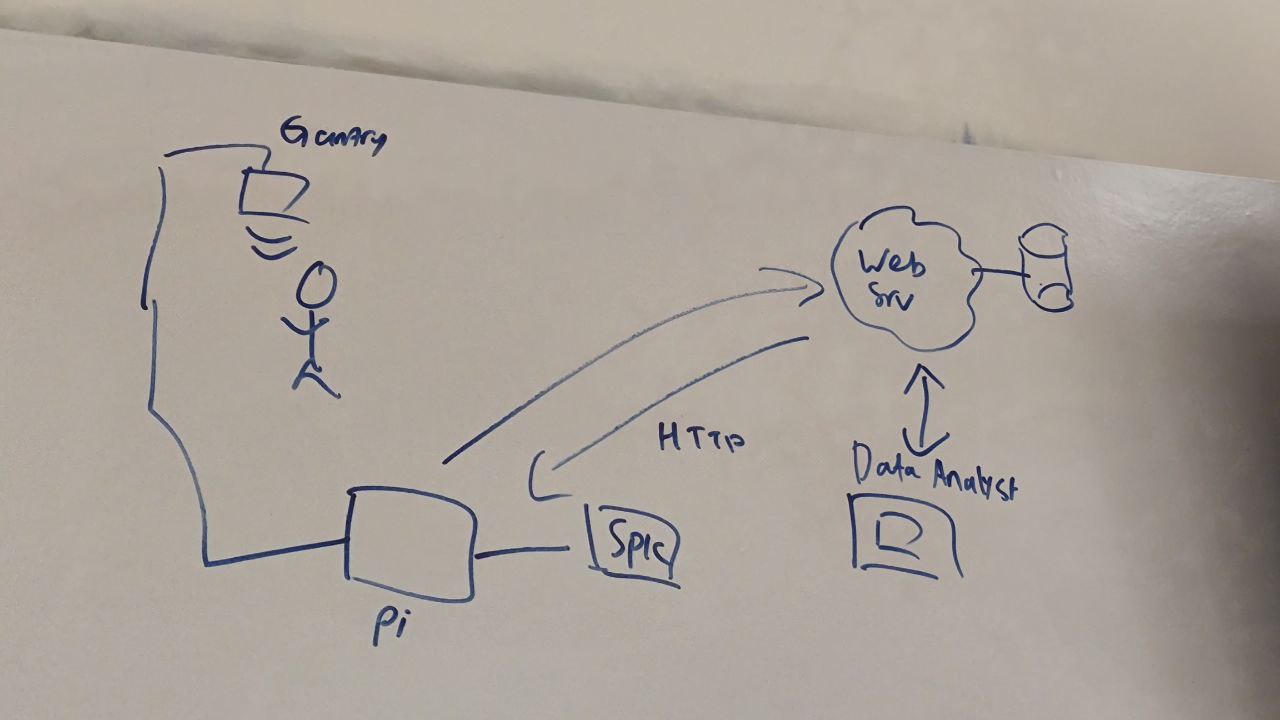 Gantry
Web
Srv
HTTP
Data Analyst
Pi